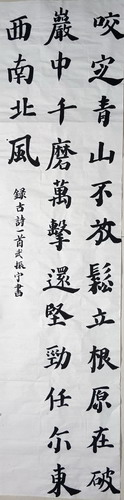 咬定青山不放鬆立根原在破
巖中千磨萬擊還堅勁任尔東
西南北風
錄古詩一首武振宇書